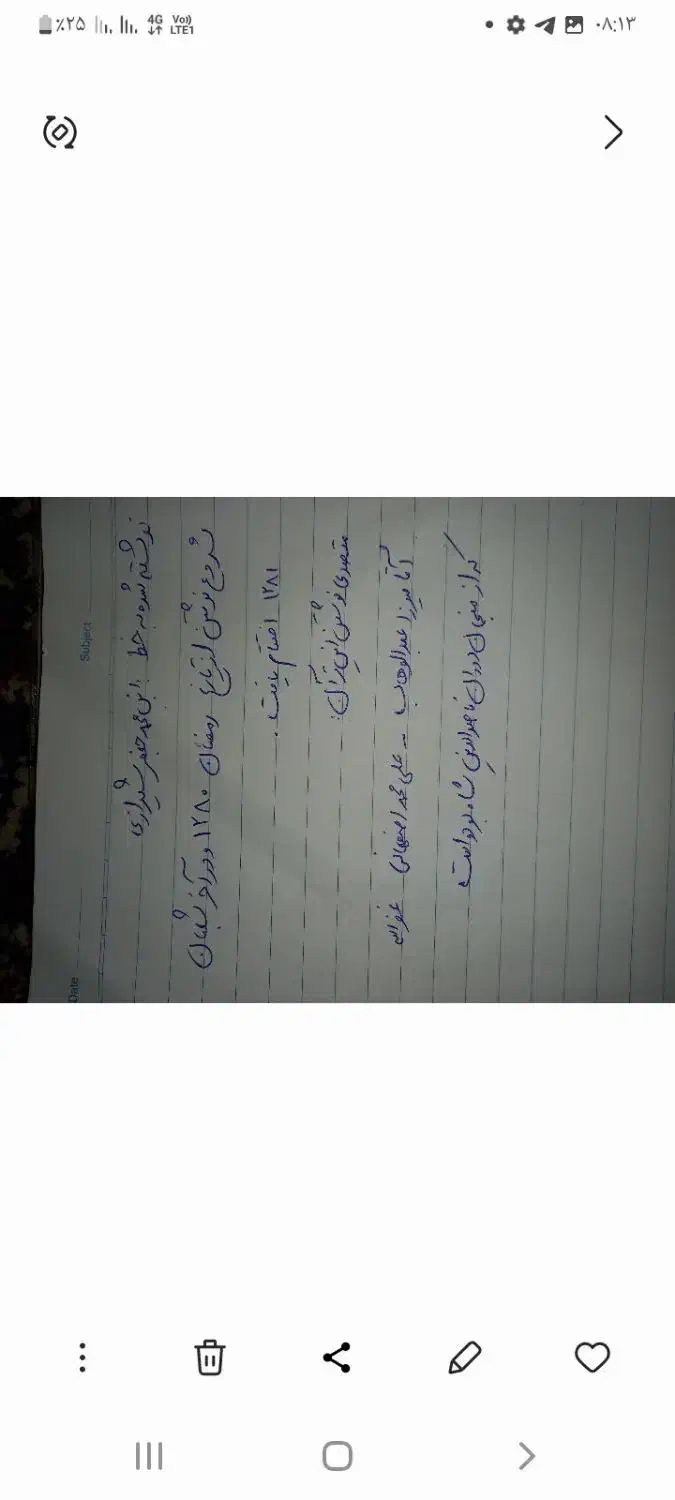 ٪۲۵ 4G Vo)) LTE1 ۰۸:۱۳
Subject
Date
نوشته شده به خط ابن محمد جعفر شیرازی
شروع نوشتن از تاریخ رمضان ۱۲۸۰ و در آخر شعبان
۱۲۸۱ اختتام یافت.
متصدی نوشتن این قرآن:
آقا میرزا عبدالوهاب - علی محمد اصفهانی
که از دوران ناصرالدین شاه بوده است